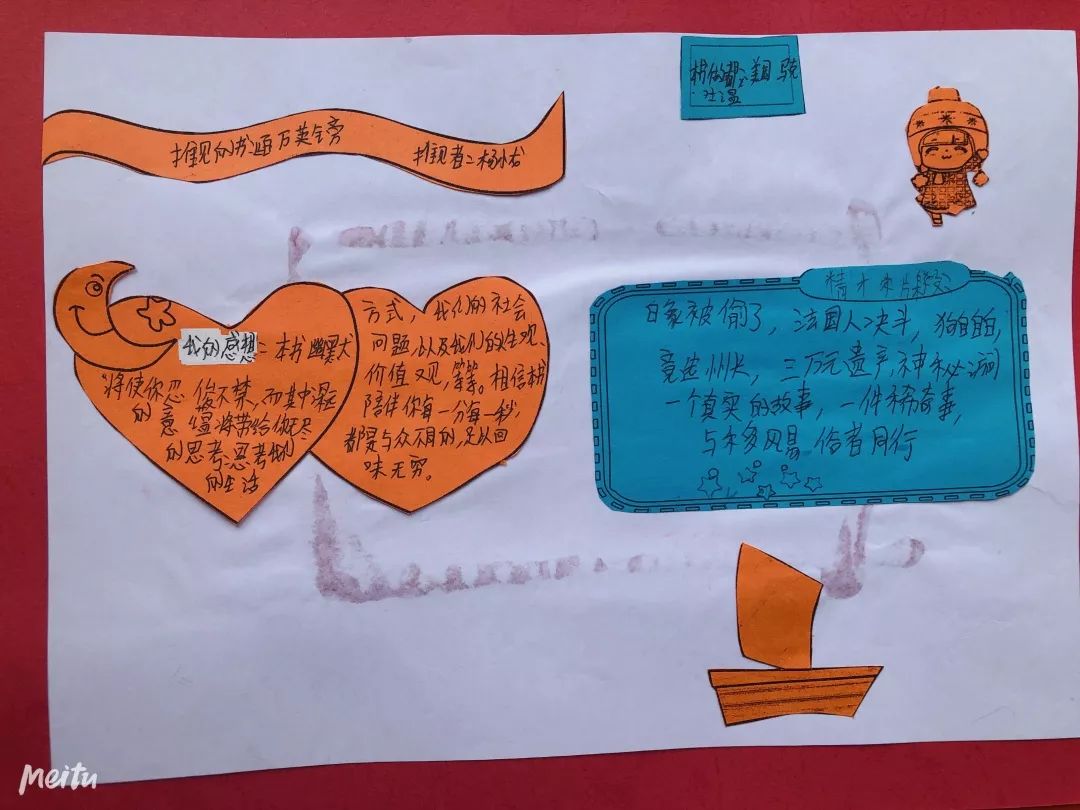 推见的书:百万英全旁
推见者:杨小右
美国 马克
吐温
我的感想: 本书幽默大
将使你忍俊不禁,而其中深远
的意蕴将带给你无尽
的思考,思考我们
的生活
方式,我们的社会
问题,以及我们的人生观、
价值观,等等。相信本书
陪伴你每一分每一秒,
都是与众不同的,足以回
味无穷。
精才本片段
白象被偷了,法国人决斗,狗自白,
竞选州长,三万元遗产,神秘访问
一个真实的故事,一件稀奇事,
与 同行
Meitu